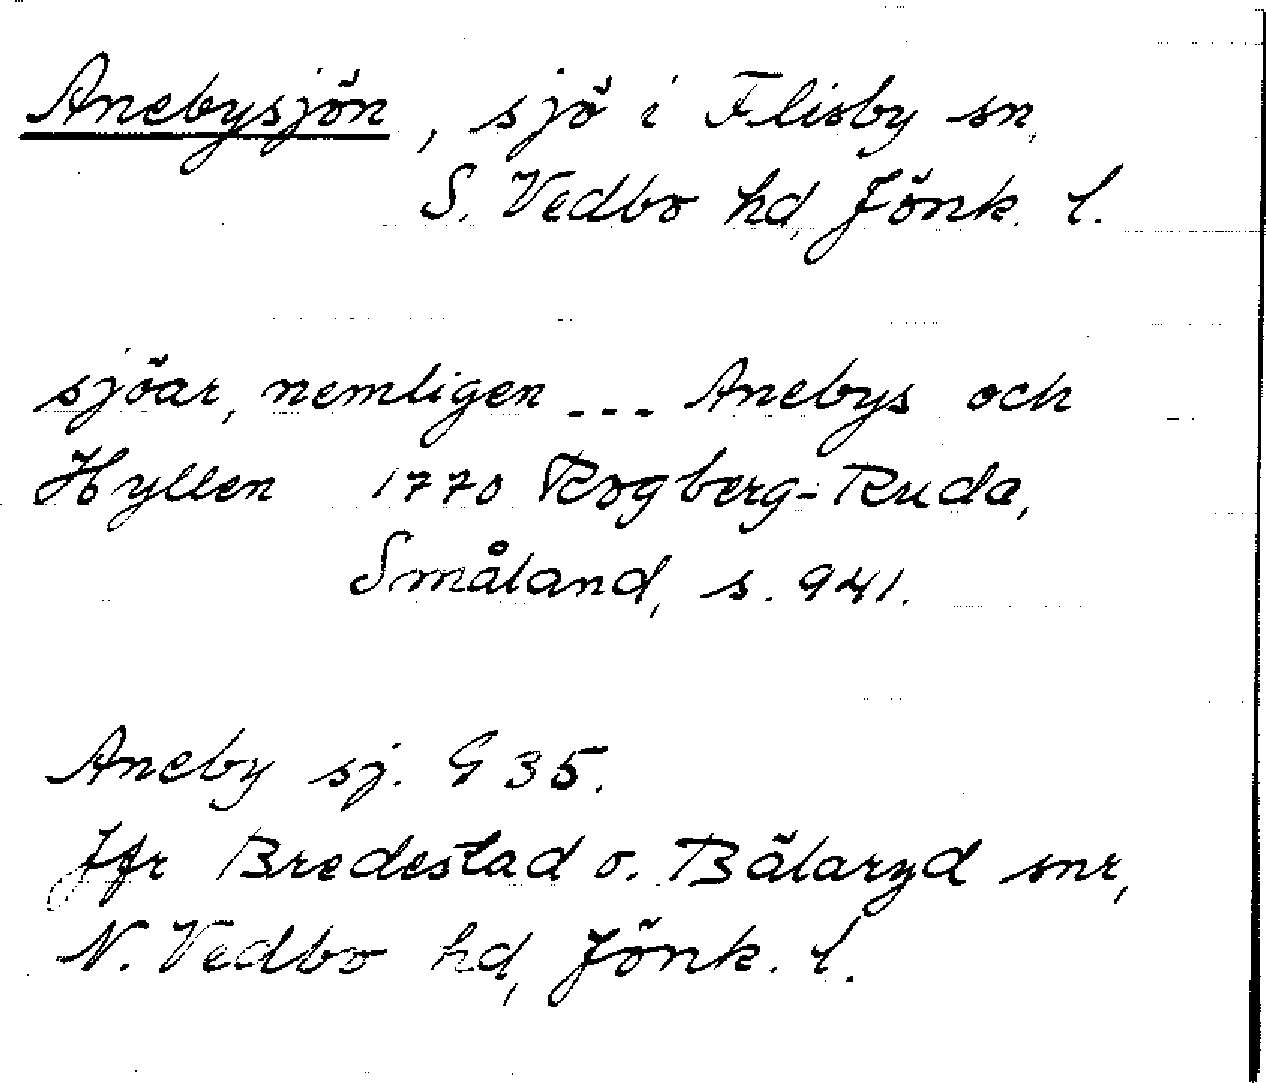 Anebysjön, sjö i Flisby sn,
S. Vedbo hd, Jönk. l.
sjöar, nemligen --- Anebys och
Hyllen 1770 Rogberg-Ruda,
Småland, s. 941.
Aneby sj. G 35.
Jfr Bredestad o. Bälaryd snr,
N. Vedbo hd, Jönk. l.